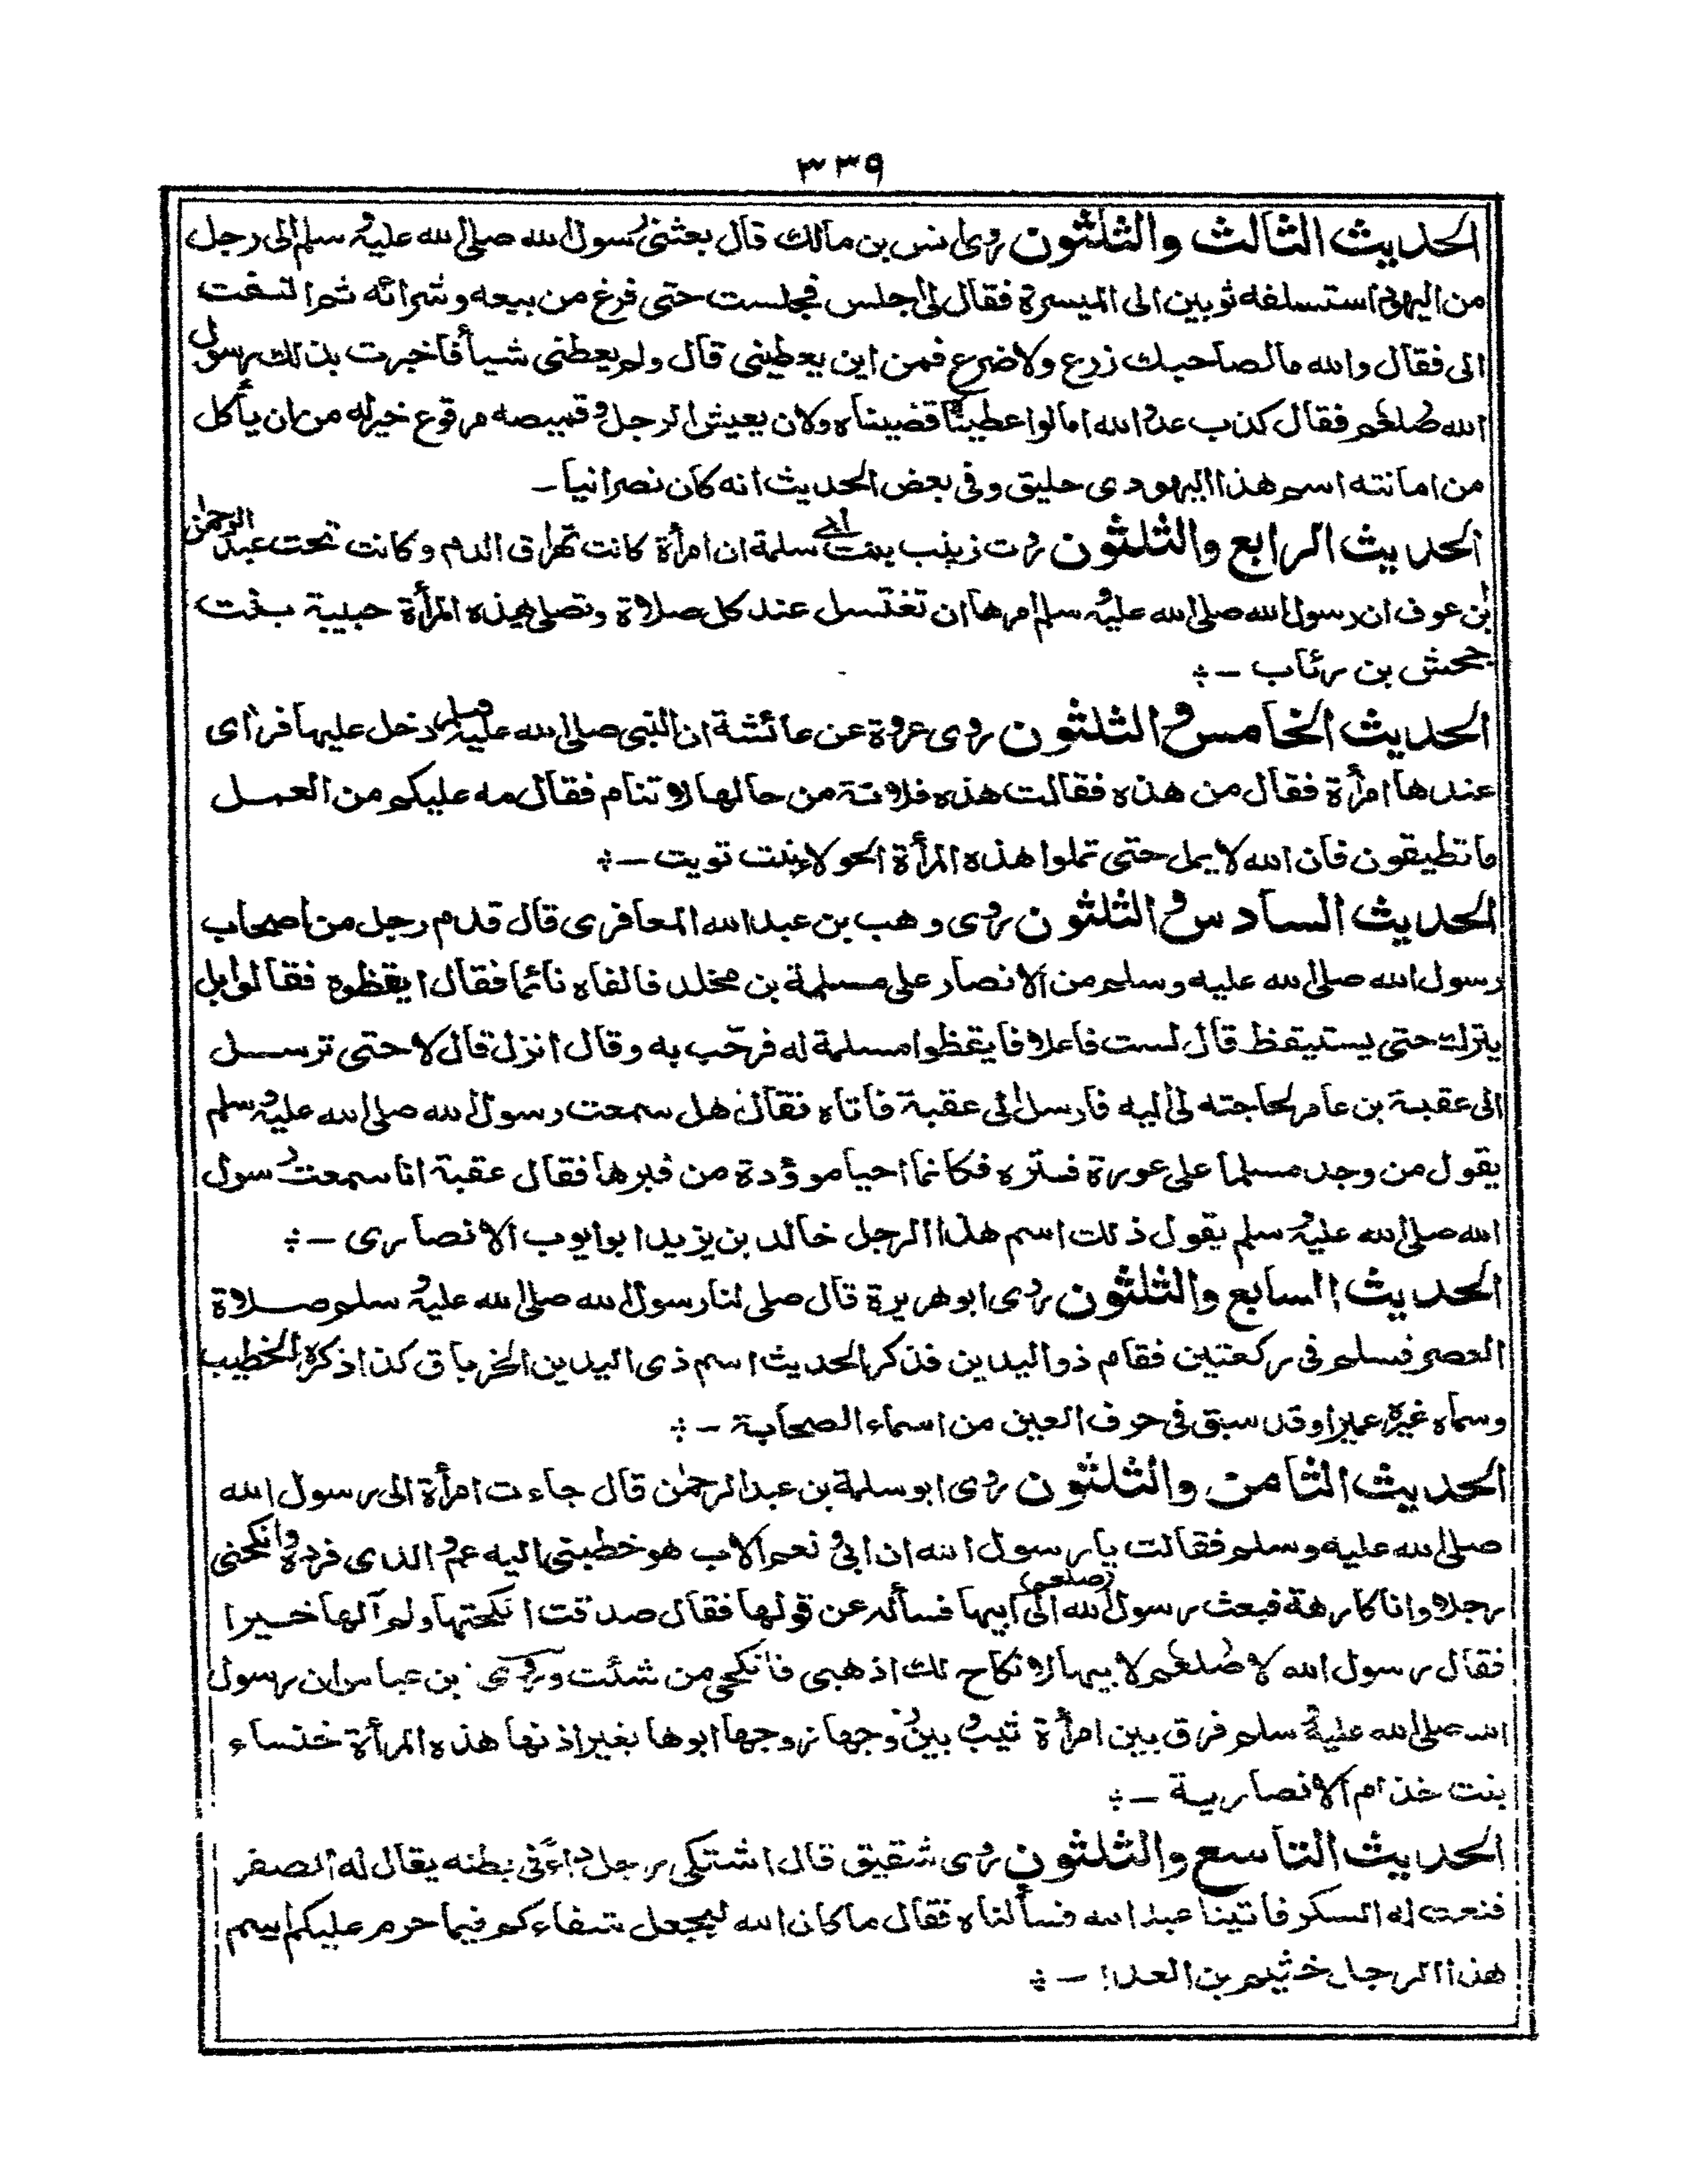 ٣٣٩
الحديث الثالث والثلثون روى انس بن مالك قال بعثنى رسول الله صلى الله عليه وسلم الى رجل
من اليهود استسلفه ثوبين الى الميسرة فقال لى اجلس فجلست حتى فرغ من بيعه وشرائه ثم التفت
الى فقال والله ما لصاحبك زرع ولا ضرع فمن اين يعطينى قال ولم يعطنى شيأ فاخبرت بذلك رسول
الله صلعم فقال كذب عدو الله اما لو اعطيتنا قضيناه ولان يعيش الرجل وقميصه مرقوع خير له من ان يأكل
من امانته اسم هذا اليهودى حليق وفى بعض الحديث انه كان نصرانيا -
الحديث الرابع والثلثون روت زينب بنت ابى سلمة ان امرأة كانت تهراق الدم وكانت تحت عبد الرحمن
بن عوف ان رسول الله صلى الله عليه وسلم امرها ان تغتسل عند كل صلاة وتصلى هذه المرأة حبيبة بنت
جحش بن رئاب -
الحديث الخامس و الثلثون روى عروة عن عائشة ان النبى صلى الله عليه وسلم دخل عليها فرأى
عندها امرأة فقال من هذه فقالت هذه فلانة من حالها لا تنام فقال مه عليكم من العمل
ما تطيقون فان الله لا يمل حتى تملوا هذه المرأة الحولاء بنت تويت -
الحديث السادس و الثلثون روى وهب بن عبد الله المعافرى قال قدم رجل من اصحاب
رسول الله صلى الله عليه وسلم من الانصار على مسلمة بن مخلد فالفاه نائما فقال ايقظوه فقالوا بل
يترك حتى يستيقظ قال لست فاعلا فايقظوا مسلمة له فرحّب به وقال انزل قال لا حتى ترسل
الى عقبة بن عامر لحاجته لى اليه فارسل الى عقبة فاتاه فقال هل سمعت رسول الله صلى الله عليه وسلم
يقول من وجد مسلما على عورة فستره فكانما احيا موؤدة من قبرها فقال عقبة انا سمعت رسول
الله صلى الله عليه وسلم يقول ذلك اسم هذا الرجل خالد بن يزيد ابو ايوب الانصارى -
الحديث السابع والثلثون روى ابو هريرة قال صلى لنا رسول الله صلى الله عليه وسلم صلاة
العصر فسلم فى ركعتين فقام ذو اليدين فذكر الحديث اسم ذى اليدين الخرباق كذا ذكره الخطيب
وسماه غيره عميرا وقد سبق فى حرف العين من اسماء الصحابة -
الحديث الثامن والثلثون روى ابو سلمة بن عبد الرحمن قال جاءت امرأة الى رسول الله
صلى الله عليه وسلم فقالت يا رسول الله ان ابى ونعم الاب هو خطبنى اليه عم ولدى فرده وانكحنى
رجلا وانا كارهة فبعث رسول الله صلعم الى ابيها فسأله عن قولها فقال صدقت انكحتها ولم آلها خيرا
فقال رسول الله لا صلعم لابيها لا نكاح لك اذهبى فانكحى من شئت وروى بن عباس ان رسول
الله صلى الله عليه وسلم فرق بين امرأة ثيب وبين زوجها زوجها ابوها بغير اذنها هذه المرأة خنساء
بنت خذام الانصارية -
الحديث التاسع والثلثون روى شقيق قال اشتكى رجل داء فى بطنه يقال له الصفر
فنعت له السكر فاتينا عبد الله فسألناه فقال ما كان الله ليجعل شفاءكم فيما حرم عليكم اسم
هذا الرجل خثيم بن العدا -